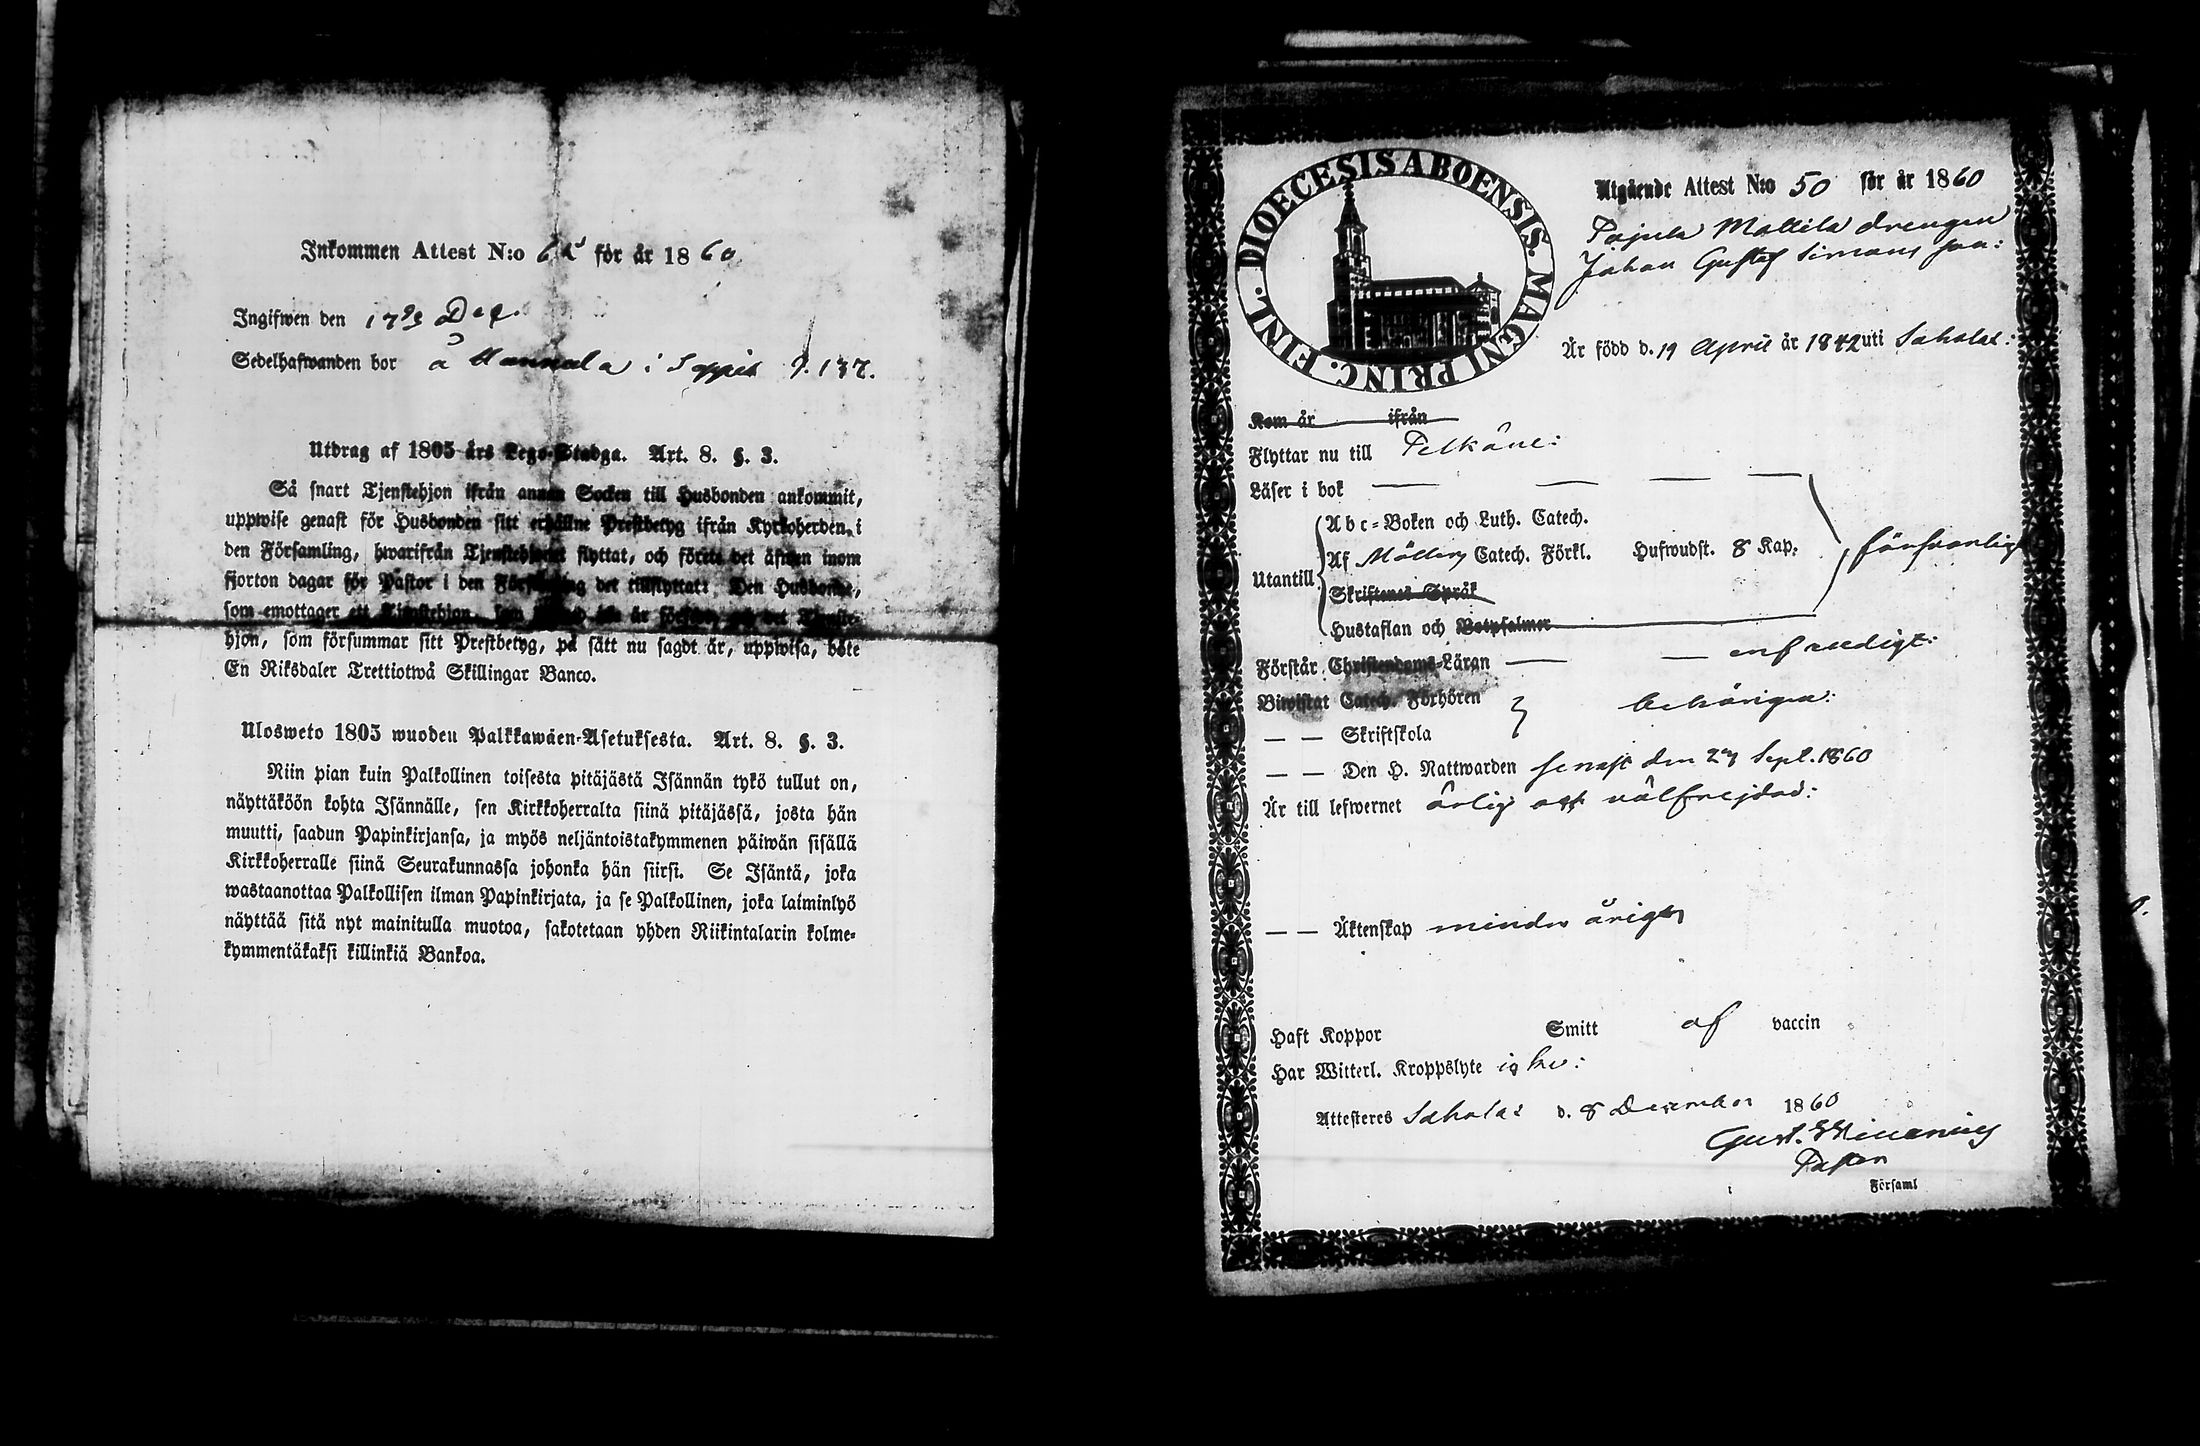 Inkommen Attest N:o för år 1860
Ingifwen den Dec.
Sedelhafwanden bor å i P. 137.
Utdrag af 1805 års Lego-Stadga. Art. 8. §. 3.
Så snart Tjenstehjon ifrån annan Socken till Husbonden ankommit,
uppwise genast för Husbonden sitt erhållne Prestbetyg ifrån Kyrkoherden, i
den Församling, hwarifrån Tjenstehjonet flyttat, och förete det äfwen inom
fjorton dagar för Pastor i den Församling det tillflyttat: Den Husbonde,
som emottager ett Tjenstehjon, är och det Tjenste-
hjon, som försummar sitt Prestbetyg, på sätt nu sagdt är, uppwisa, böte
En Riksdaler Trettiotwå Skillingar Banco.
Ulosweto 1805 wuoden Palkkawäen-Asetuksesta. Art. 8. §. 3.
Niin pian kuin Palkollinen toisesta pitäjästä Isännän tykö tullut on,
näyttäköön kohta Isännälle, sen Kirkkoherralta siinä pitäjässä, josta hän
muutti, saadun Papinkirjansa, ja myös neljäntoistakymmenen päiwän sisällä
Kirkkoherralle siinä Seurakunnassa johonka hän siirsi. Se Isäntä, joka
wastaanottaa Palkollisen ilman Papinkirjata, ja se Palkollinen, joka laiminlyö
näyttää sitä nyt mainitulla muotoa, sakotetaan yhden Riikintalarin kolme-
kymmentäkaksi killinkiä Bankoa.
DIOECESIS ABOENSIS. MAGNI PRINC. FINL.
Utgående Attest N:o 50 för år 1860
Pajula Mattila drengen
Johan Gustaf Simons son:
Är född d. 19 April år 1842 uti Sahalax:
Kom år ifrån
Flyttar nu till Pelkäne:
Läser i bok
Utantill
Abc-Boken och Luth. Catech.
Af Möllers Catech. Förkl. Hufwudst. 8 Kap. försvarligt
Skriftenes Språk
Hustaflan och Botpsalmer
Förstår Christendoms-Läran enfaldigt:
Biwistat Catech. Förhören behörigen:
— — Skriftskola
— — Den H. Nattwarden senast den Sept. 1860
Är till lefwernet ärlig och välfrejdad:
— — Äktenskap minder årig
Haft Koppor Smitt af vaccin
Har Witterl. Kroppslyte
Attesteres Sahalax d. 8 December 1860
Gust.
Pastor
Församl